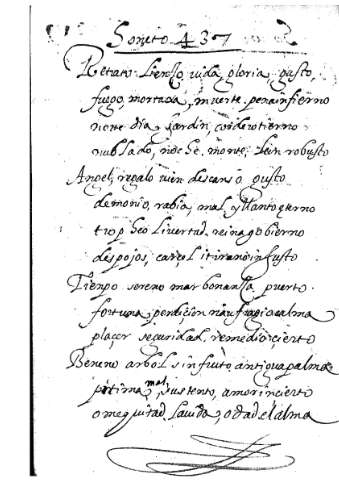 Soneto 437
Retato. Lienço, vida, gloria, gusto,
fuego, mortaxa, muerte, pena infierno
norte dia, jardin, corderotierno
nublado, noche, monte, robusto
Angel, regalo vien descanso gusto
demonio, rabia, mal, y llanto eterno
tropheo livertad, reina gobierno
despojos, carcel tirano infusto
Tienpo sereno mar bonansa puerto
fortuna, perdicion naufragio calma
plaçer seguridad, remedio cierto
Beneno arbol sin fruto, antigua palma
pitima mal, sustento, amor incierto
o me quitad, la vida, o dad el alma